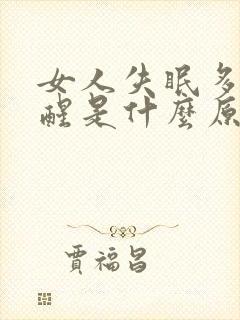 女人失眠多
醒是什麼原
賈福昌